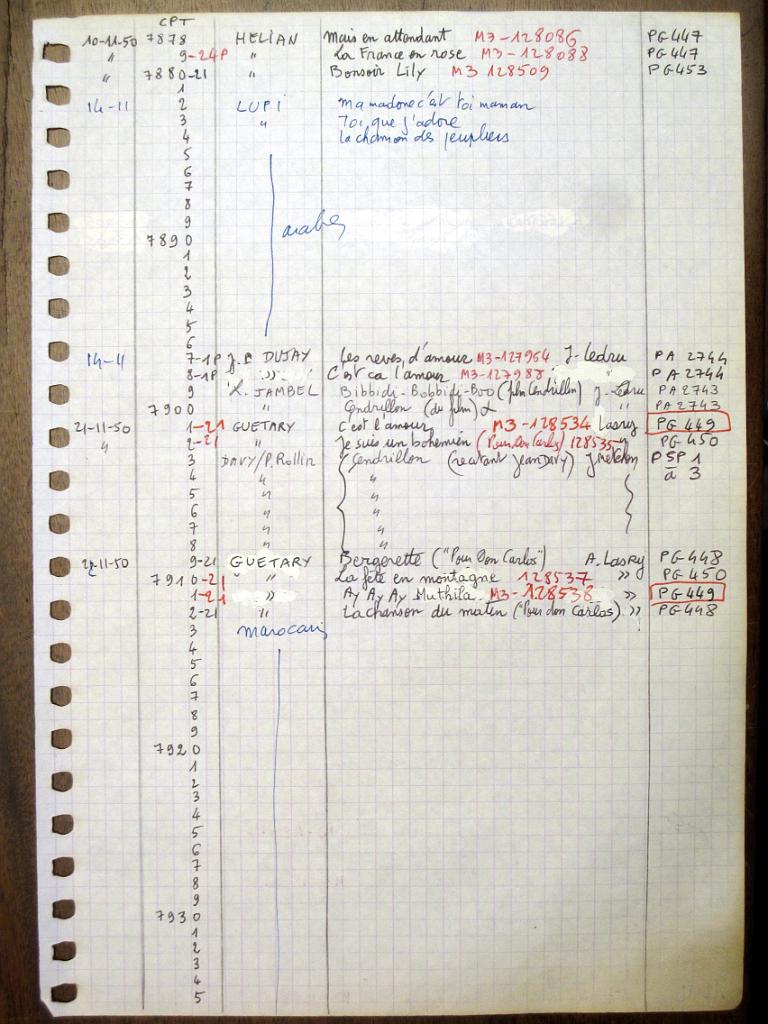 CPT
10-11-50 7878 HELIAN Mais en attendant M3-128086 PG 447
" 9-24P " La France en rose M3-128088 PG 447
" 7880-21 " Bonsoir Lily M3 128509 PG 453
1
14-11 2 LUPI ma madone c'est toi maman
3 " Toi que j'adore
4 la chanson des peupliers
5
6
7
8
9
7890 arabe
1
2
3
4
5
6
14-11 7-1P J. P DUJAY Les reves d'amour M3-127964 J. Ledru PA 2744
8-1P " C'est ca l'amour M3-127988 " PA 2744
9 X. JAMBEL Bibbidi-Bobbidi-Boo (film Cendrillon) J. Ledru PA 2743
7900 " Cendrillon (du film) " PA 2743
21-11-50 1-21 GUETARY C'est l'amour M3-128534 Lasry PG 449
" 2-21 Je suis un bohemien (Pour Don Carlos) 128535 " PG 450
3 DAVY/P. Rollin Cendrillon (recitant Jean Davy) PSP 1
4 " " à 3
5 " "
6 " "
7 " "
8 " "
22-11-50 9-21 GUETARY Bergerette ("Pour Don Carlos") A. Lasry PG 448
7910-21 " La fete en montagne 128537 " PG 450
1-21 " Ay Ay Ay Muthila M3-128538 " PG 449
2-21 " La chanson du matin ("Pour don Carlos") " PG 448
3 marocain
4
5
6
7
8
9
7920
1
2
3
4
5
6
7
8
9
7930
1
2
3
4
5